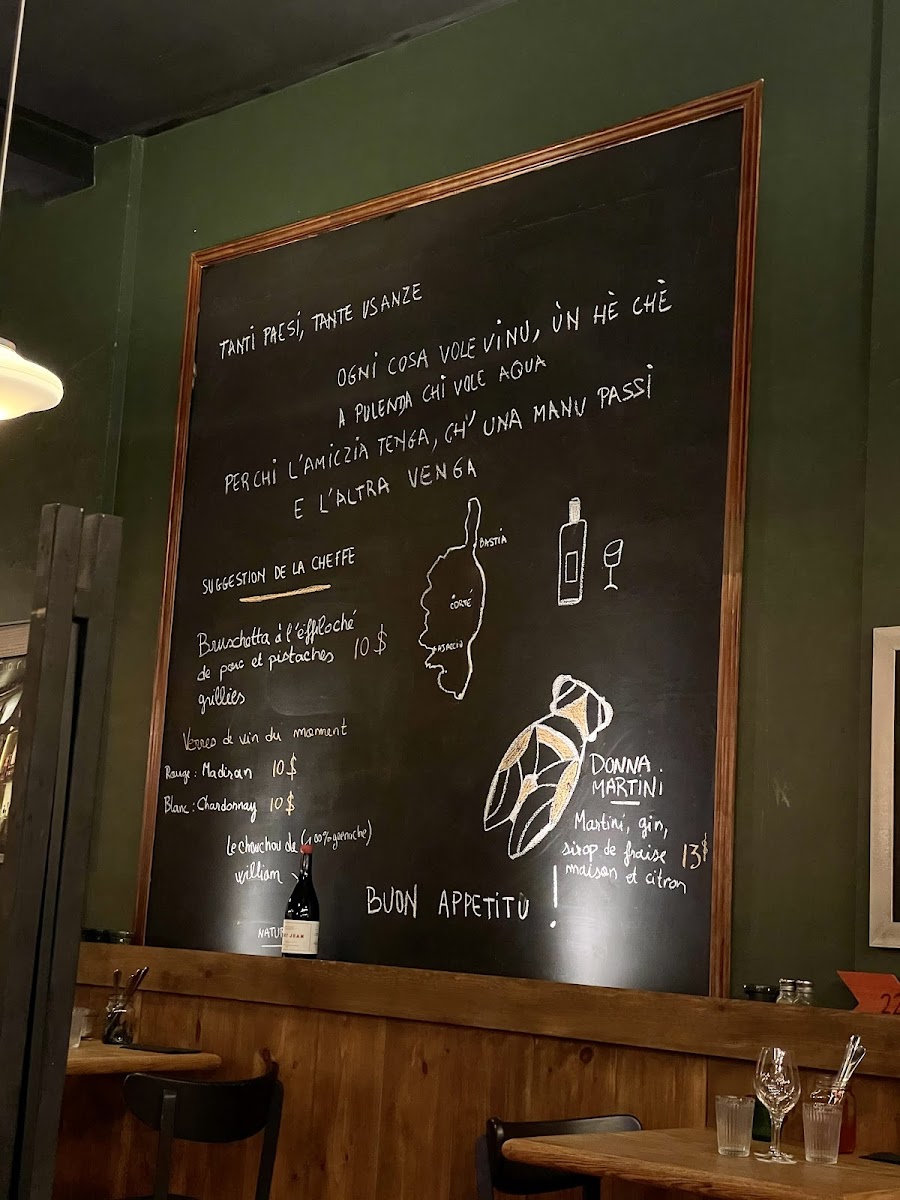 TANTI PAESI, TANTE USANZE
OGNI COSA VOLE VINU, ÙN HÈ CHÈ
A PULENDA CHI VOLE AQUA
PERCHI L'AMICZIA TENGA, CH' UNA MANU PASSI
E L'ALTRA VENGA
SUGGESTION DE LA CHEFFE
Bruschetta à l'éffiloché
de porc et pistaches 10$
grillées
Verres de vin du moment
Rouge: Madiran 10$
Blanc: Chardonnay 10$
Le chouchou de (100% grenache)
william
NATUR
BASTIA
CORTÉ
AJACCIO
DONNA
MARTINI
Martini, gin,
sirop de fraise 13$
maison et citron
BUON APPETITU !
22